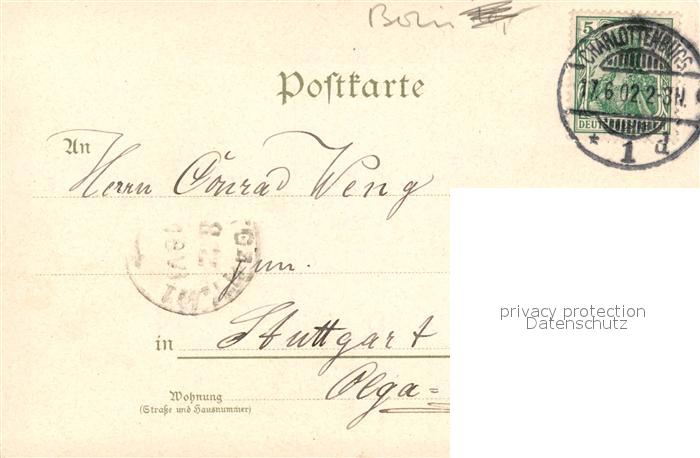 5
CHARLOTTENBURG
17.6.02.2-3N.
* 1 d
Postkarte
An
Herrn Conrad Weng
jun.
in Stuttgart
Wohnung
(Straße und Hausnummer)
Olga=
privacy protection
Datenschutz